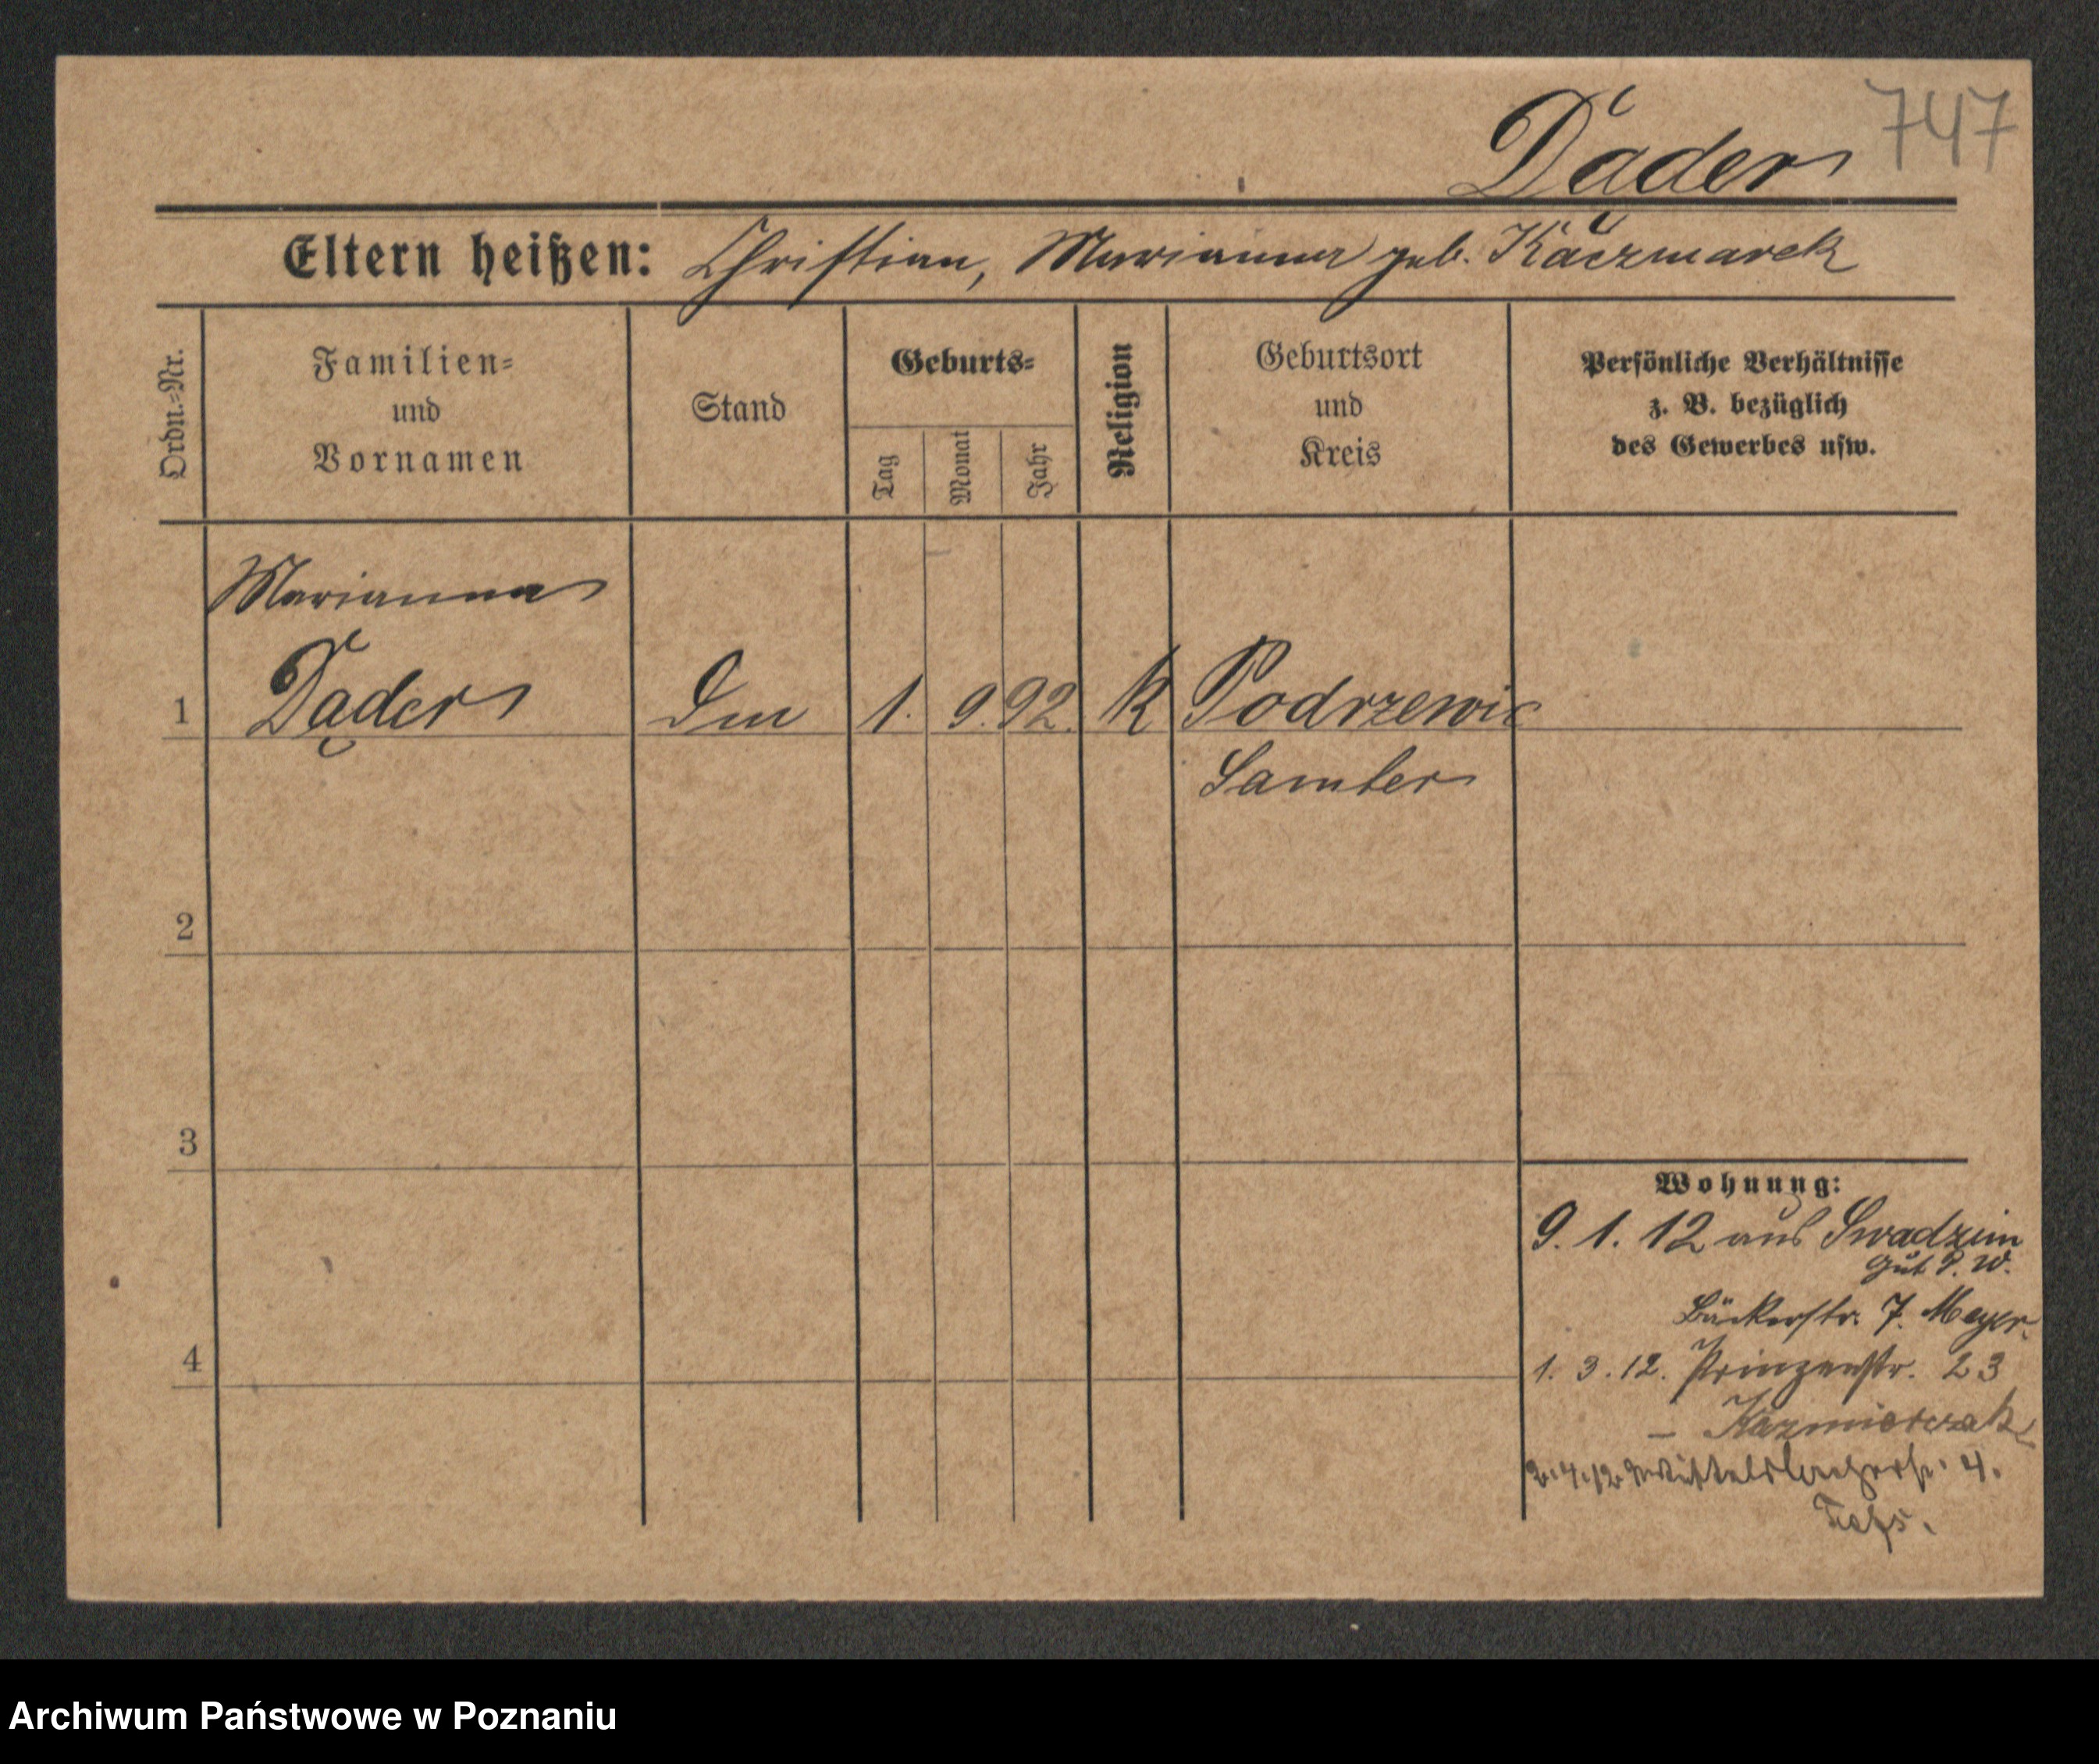 747
Dader
Eltern heißen: Christian, Marianna geb. Kaczmarek
Ordn.-Nr.
Familien-
und
Vornamen
Stand
Geburts-
Tag
Monat
Jahr
Religion
Geburtsort
und
Kreis
Persönliche Verhältnisse
z. B. bezüglich
des Gewerbes usw.
Marianna
1 Dąder 1. 9. 92. k Podrzewie
Samter
2
3
4
Wohnung:
9. 1. 12 aus Swadzim
Gut P. W.
Bäckerstr. 7. Meyer.
1. 3. 12. Prinzenstr. 23
– Kazmierczak
2.4.12 4.
Archiwum Państwowe w Poznaniu